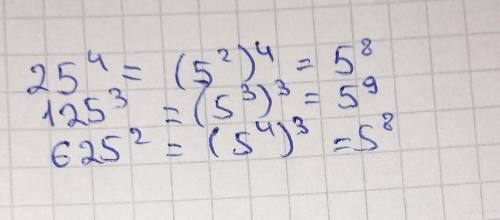 25⁴ = (5²)⁴ = 5⁸
125³ = (5³)³ = 5⁹
625² = (5⁴)³ = 5⁸